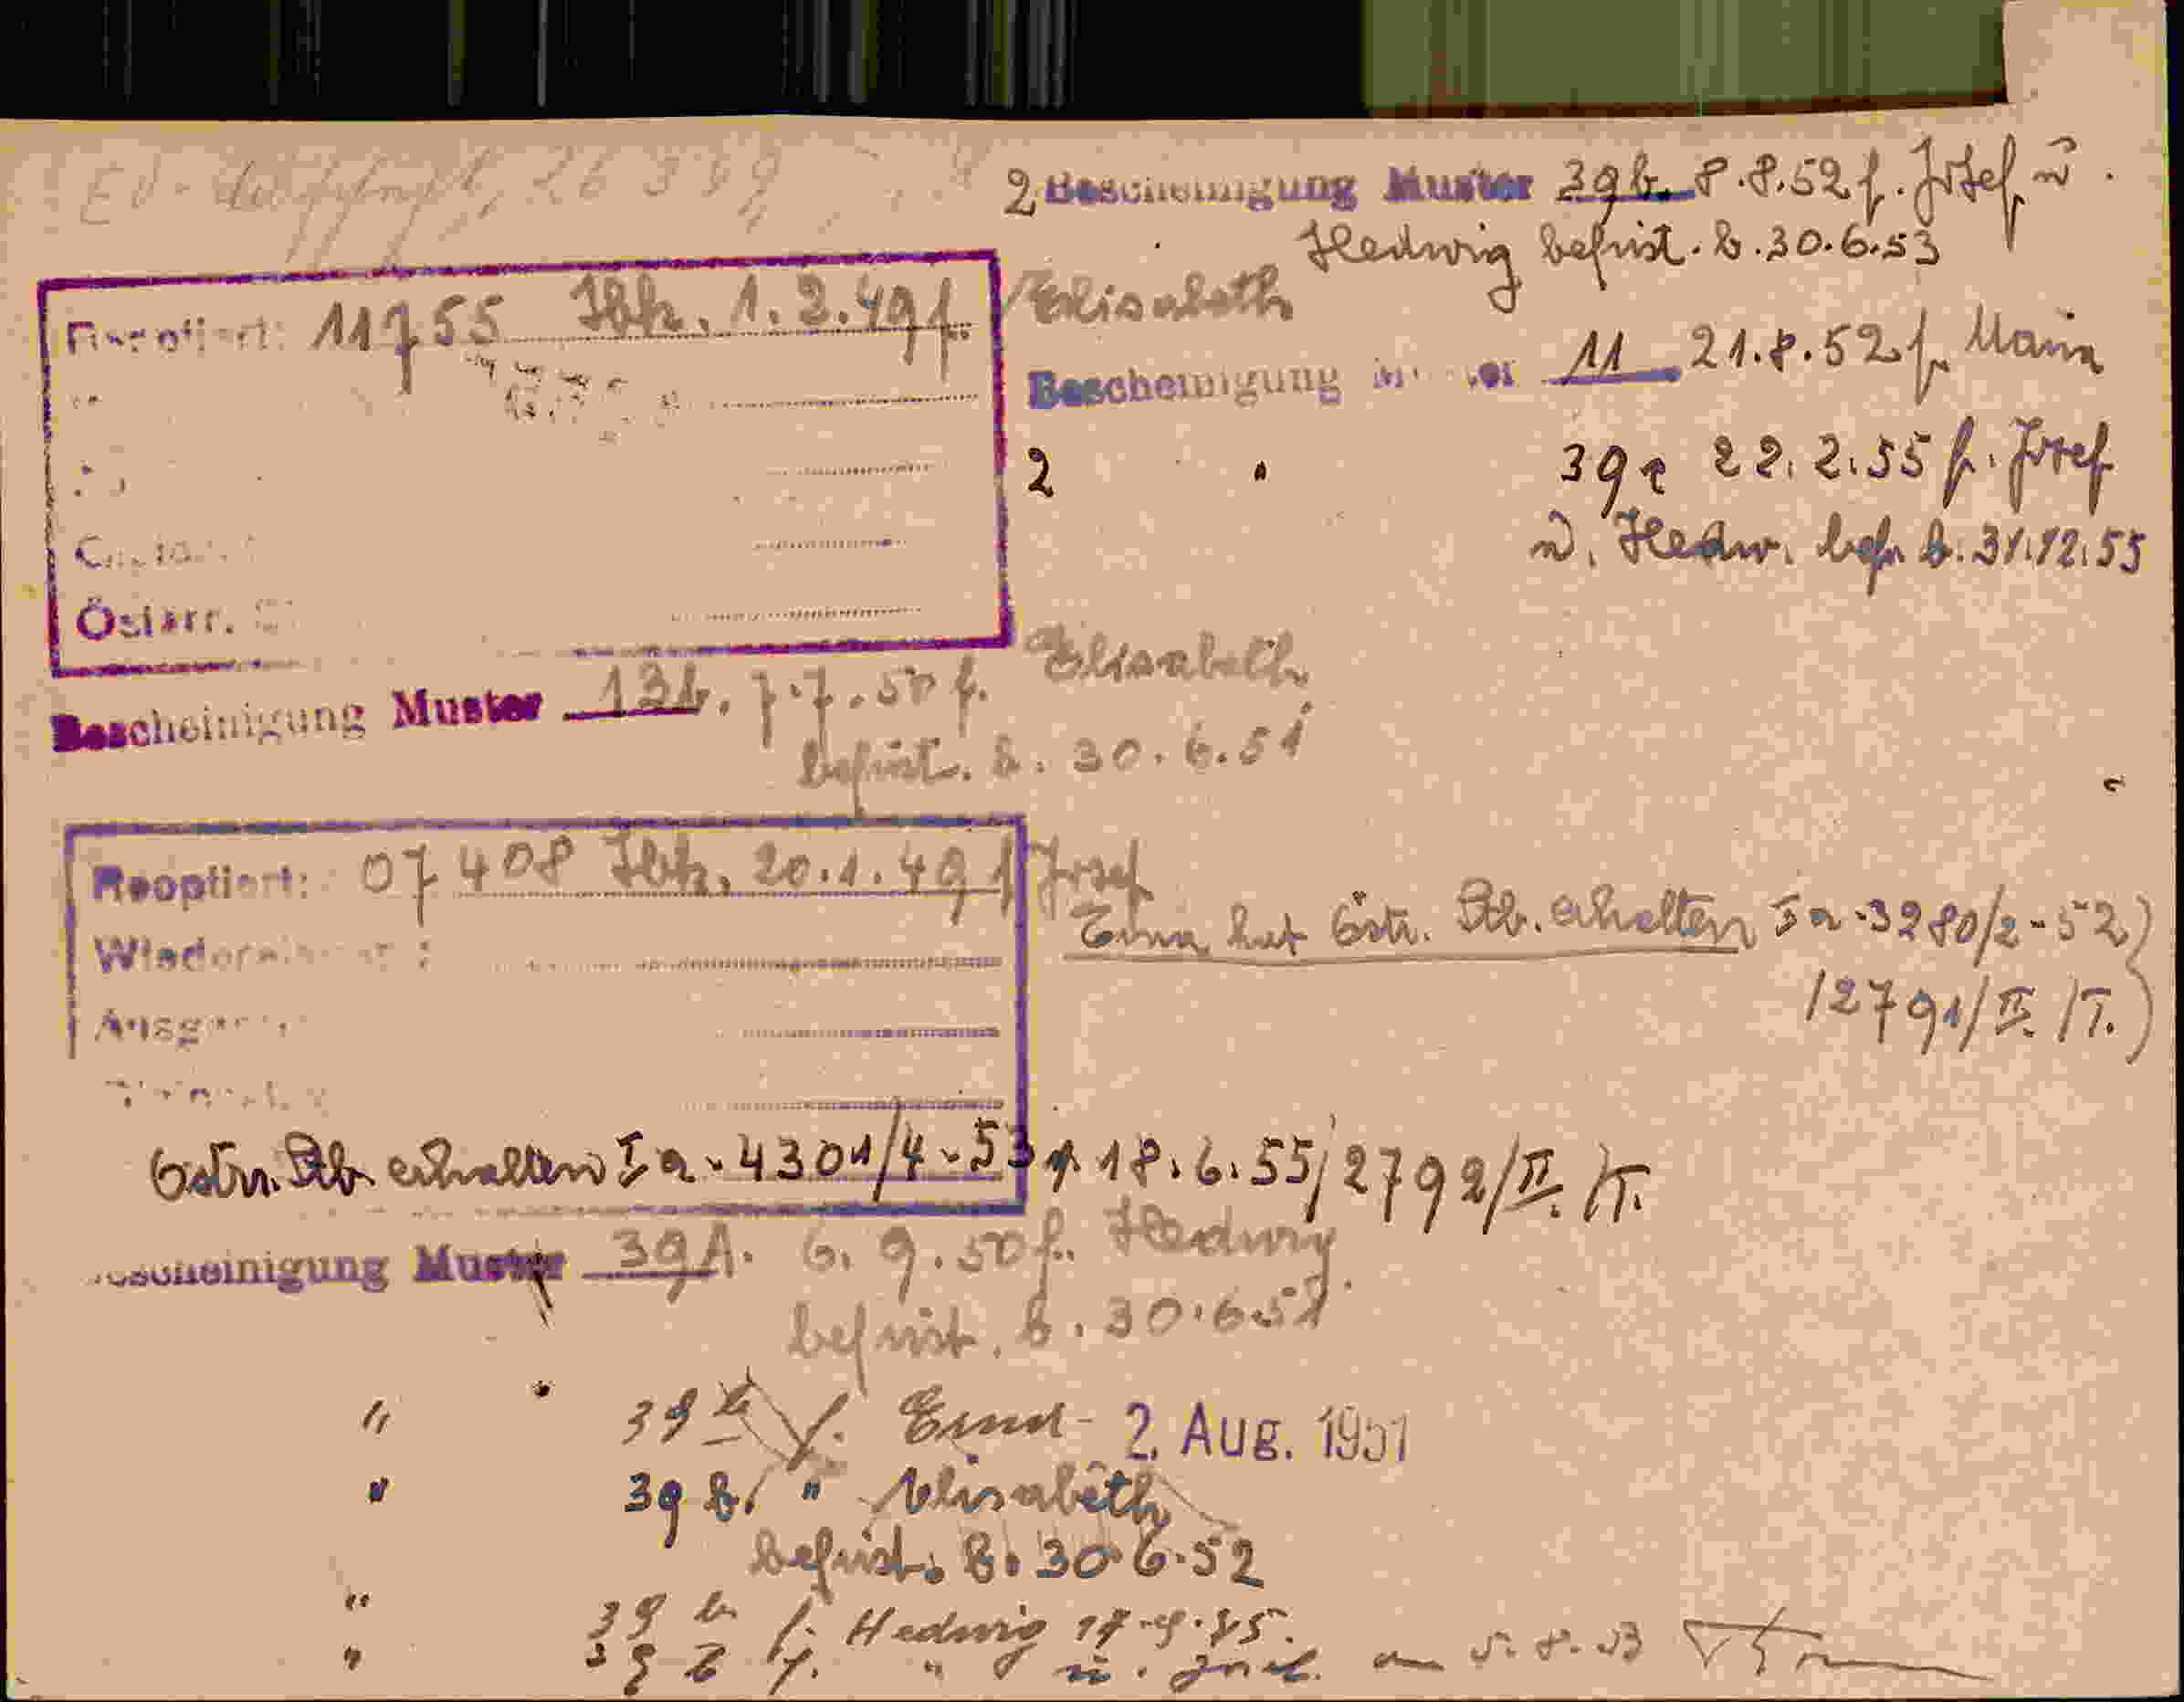 26399
2 Bescheinigung Muster 39b. 8.8.52 f. Josef u.
Hedwig befrist. b. 30.6.53
Reoptiert: 11755 Ibk. 1.2.49 f. Elisabeth
Bescheinigung 11 21.8.52 f. Maria
2 " 39a 22.2.55 f. Josef
u. Hedw. bef. b. 31.12.55
Österr.
Bescheinigung Muster 13b. 7.7.50 f. Elisabeth
befrist. b. 30.6.51
Reoptiert: 07408 Ibk. 20.1.49 f Josef
Erna hat östr. Stb. erhalten Ia-3280/2-52)
12791/II./T.)
Östrr. Stb. erhalten Ia-4301/4-53 18.6.55/2792/II./T.
Bescheinigung Muster 39A. 6.9.50 f. Hedwig
befrist. b. 30.6.51
" " 39 b f. - 2. Aug. 1951
" 39 b. " Elisabeth
befrist. b. 30.6.52
" 39 b f. Hedwig
" 39 b f. " u. 5.8.53